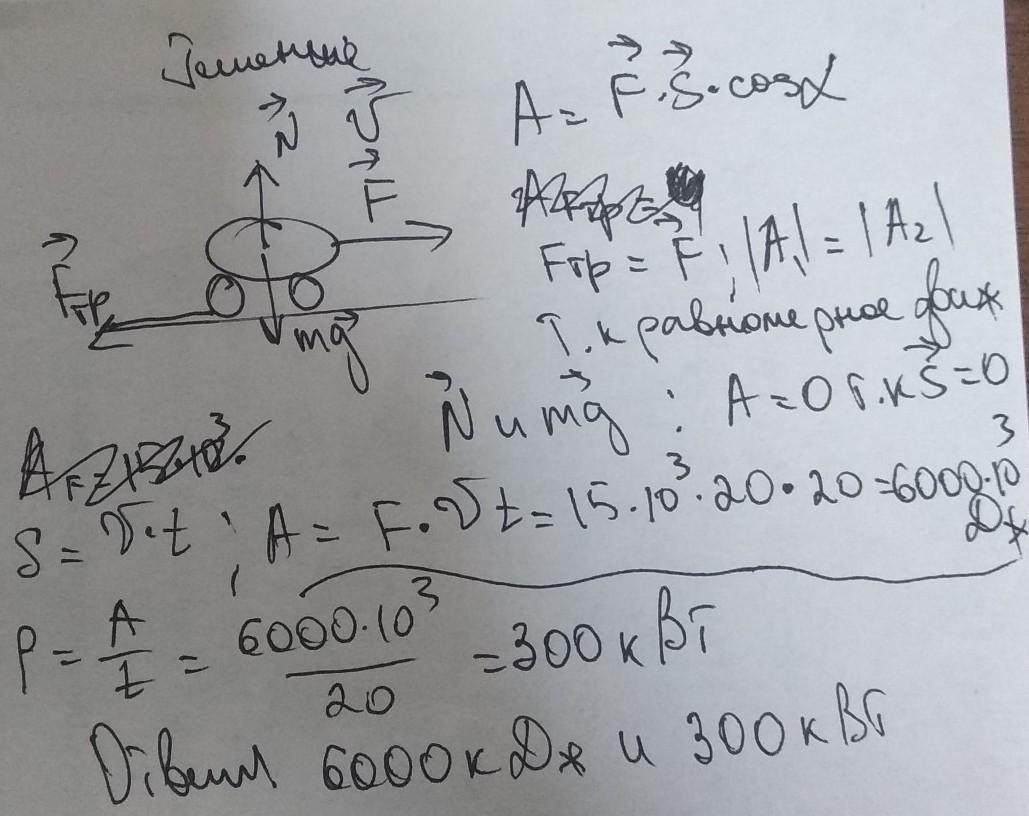 Решение
N⃗ v⃗
F⃗
F⃗тр
mg⃗
A = F⃗ · S⃗ · cosα
Fтр = F⃗ ; |A₁| = |A₂|
Т.к равномерное движ
N⃗ и mg⃗ : A = 0 т.к S⃗ = 0
S = v·t ; A = F · v t = 15 · 10³ · 20 · 20 = 6000 · 10³ Дж
P = A/t = 6000·10³/20 = 300 кВт
Ответ 6000 кДж и 300 кВт